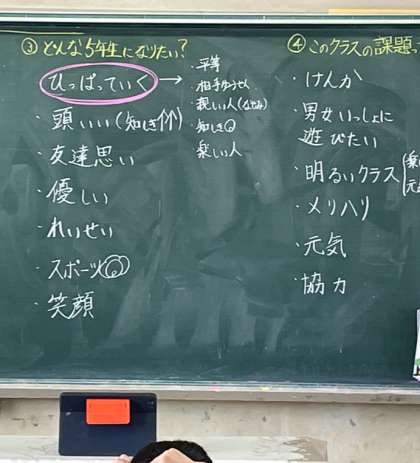 ③どんな5年生になりたい?
ひっぱっていく → ・平等
・相手ゆうせん
・親しい人(なやみ)
・知しき◎
・楽しい人
・頭いい(知しき竹)
・友達思い
・優しい
・れいせい
・スポーツ◎
・笑顔
④このクラスの課題
・けんか
・男女いっしょに
遊びたい
・明るいクラス
・メリハリ
・元気
・協力